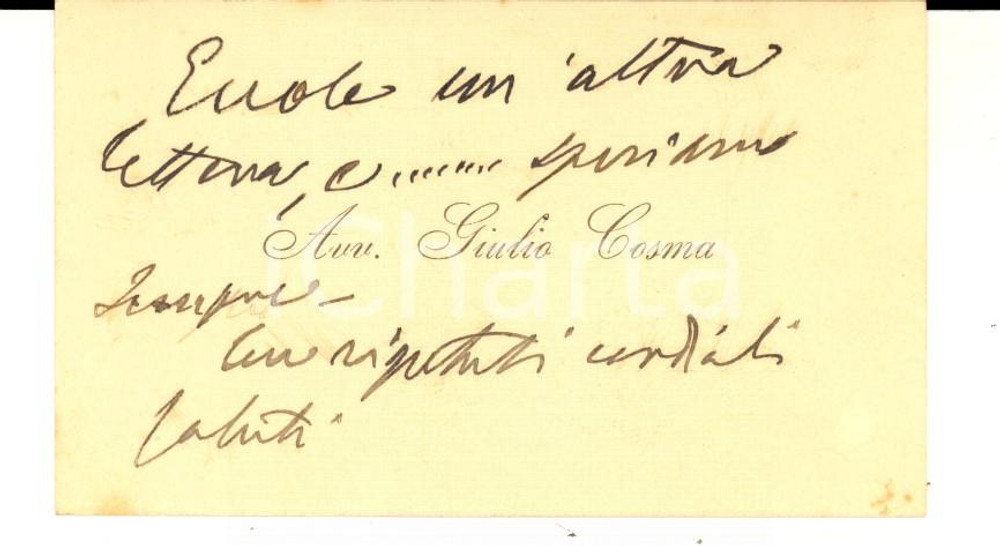 Eccole un'altra
lettera, e ....... speriamo
Avv. Giulio Cosma
sempre –
Con ripetuti cordiali
saluti
iCharta